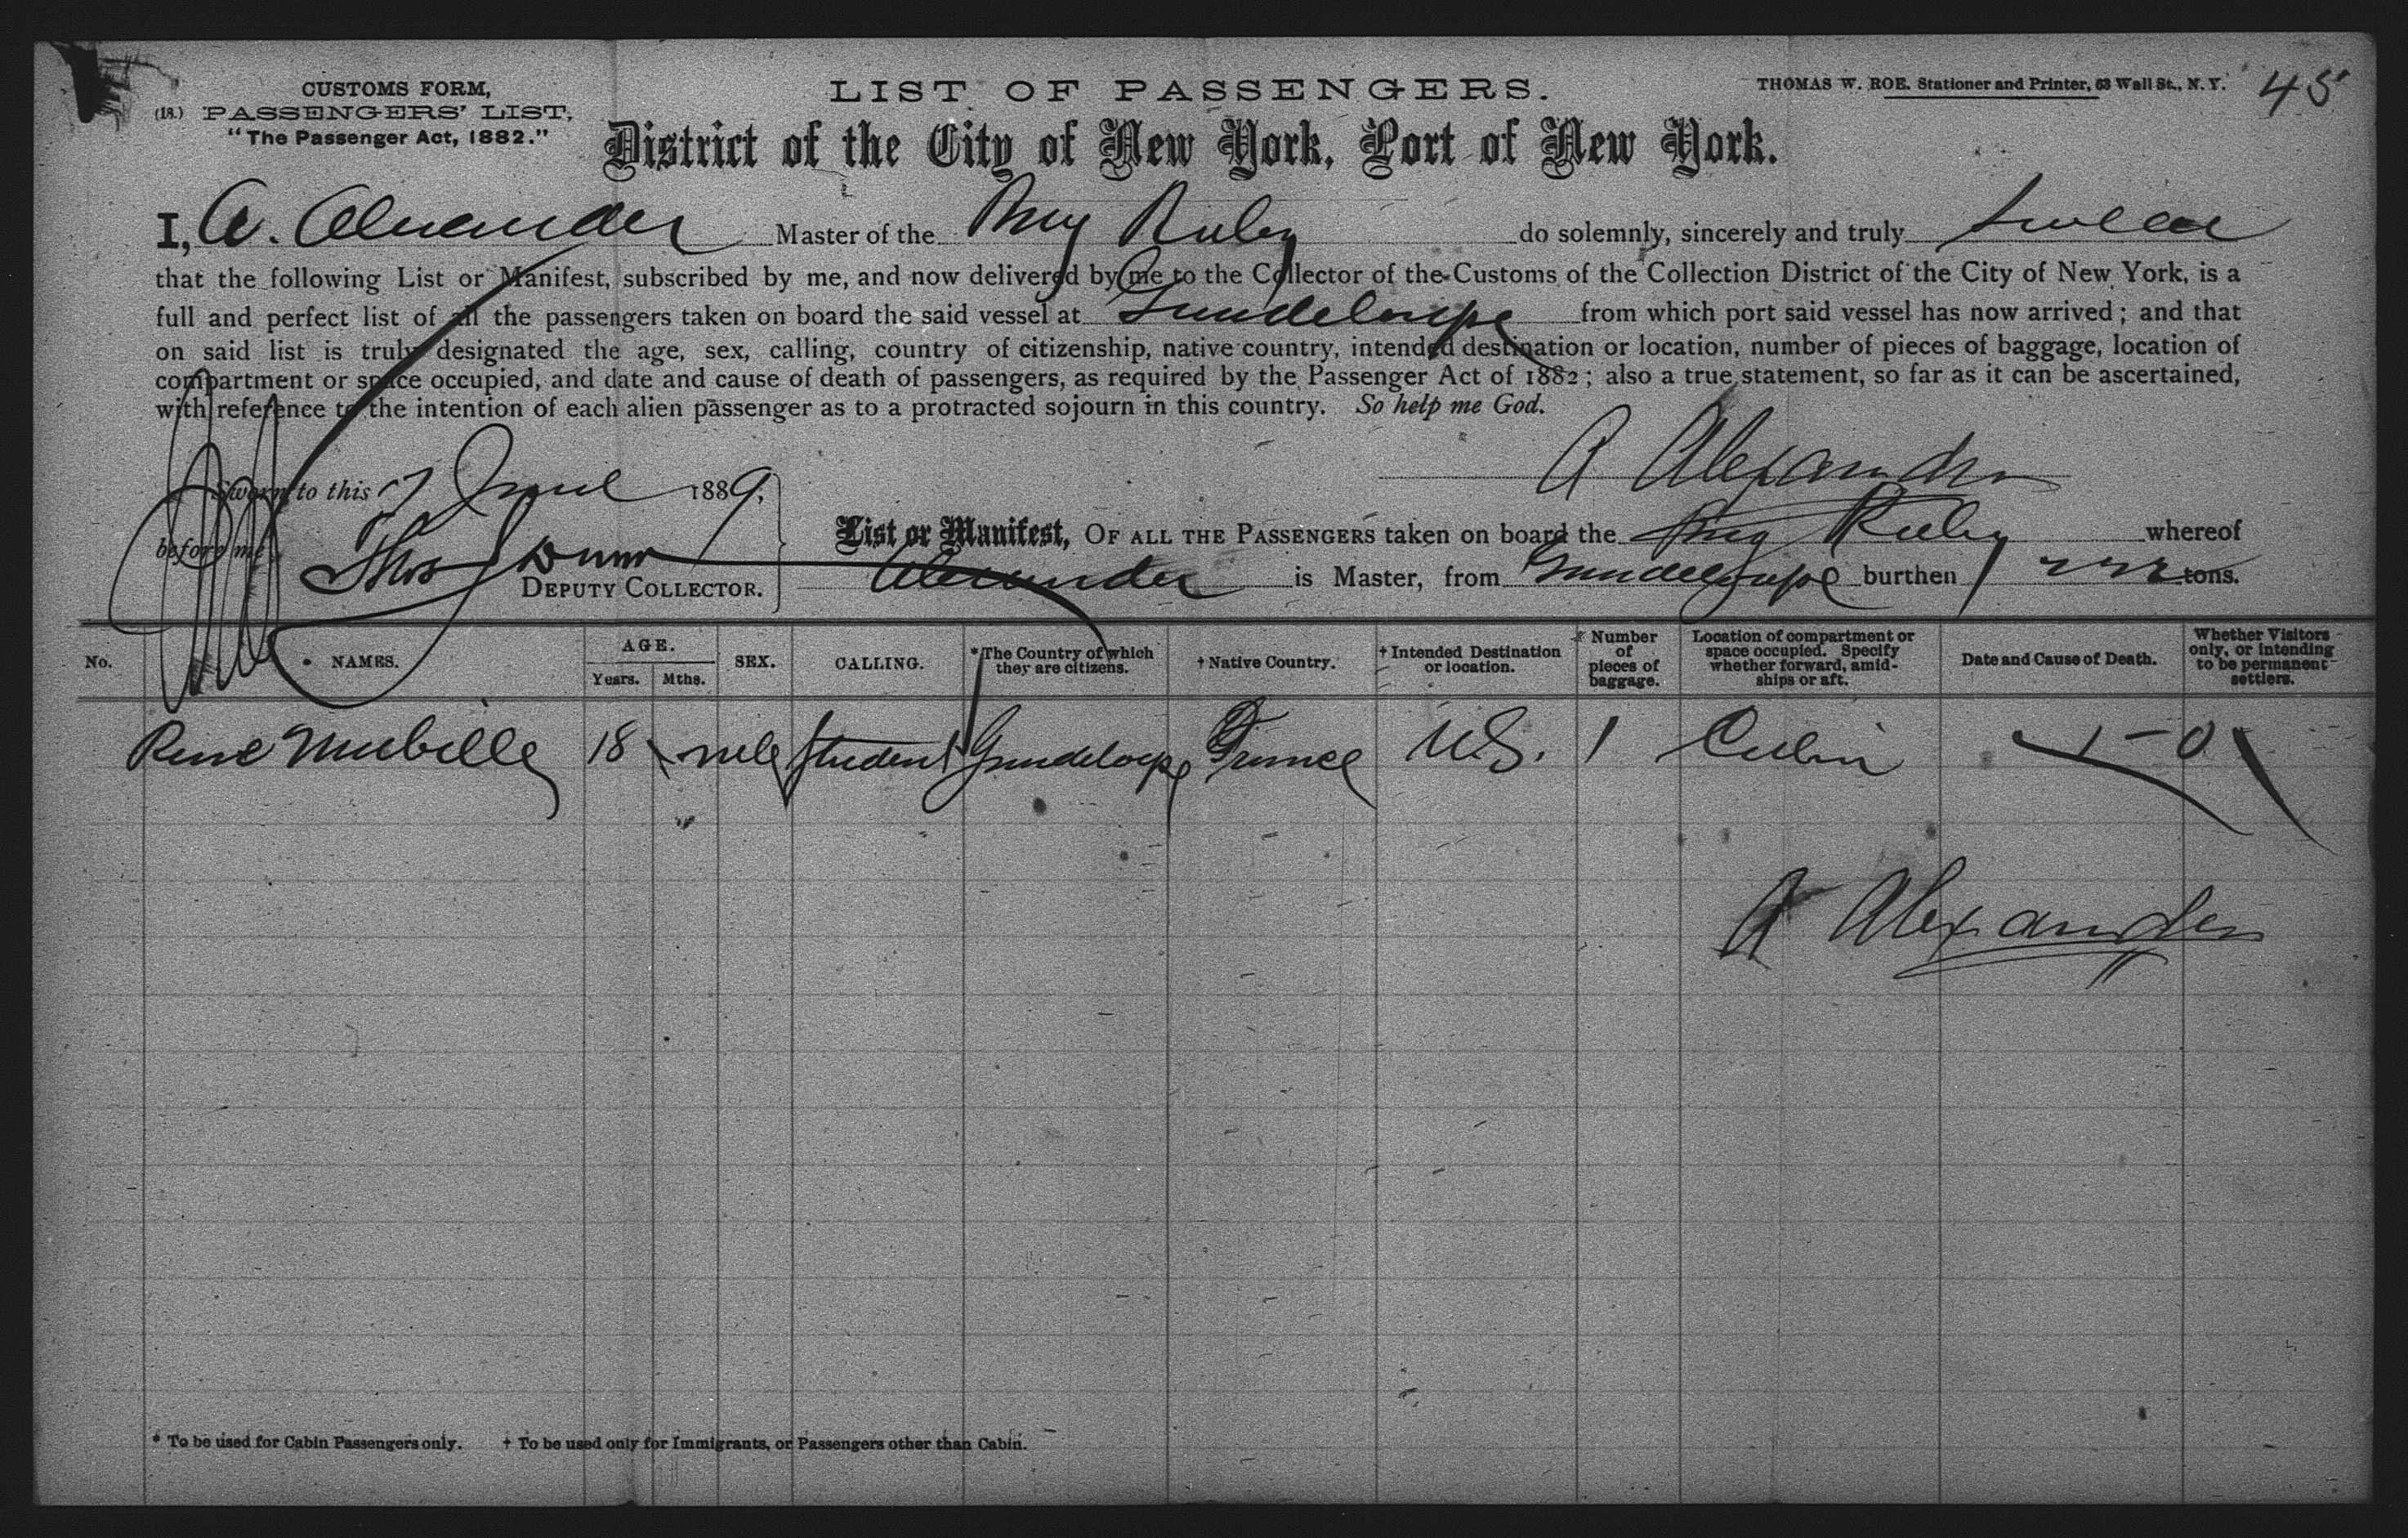 CUSTOMS FORM,
(18.) PASSENGERS' LIST,
"The Passenger Act, 1882."
LIST OF PASSENGERS.
THOMAS W. ROE. Stationer and Printer, 63 Wall St., N. Y.
45
District of the City of New York, Port of New York.
I, A. Alexander Master of the Brig Ruby do solemnly, sincerely and truly swear
that the following List or Manifest, subscribed by me, and now delivered by me to the Collector of the Customs of the Collection District of the City of New York, is a
full and perfect list of all the passengers taken on board the said vessel at Guadeloupe from which port said vessel has now arrived; and that
on said list is truly designated the age, sex, calling, country of citizenship, native country, intended destination or location, number of pieces of baggage, location of
compartment or space occupied, and date and cause of death of passengers, as required by the Passenger Act of 1882; also a true statement, so far as it can be ascertained,
with reference to the intention of each alien passenger as to a protracted sojourn in this country. So help me God.
A Alexander
Sworn to this 7 June 1889,
before me
Thos Dunn
DEPUTY COLLECTOR.
List or Manifest, OF ALL THE PASSENGERS taken on board the Brig Ruby whereof
Alexander is Master, from Guadeloupe burthen tons.
No. NAMES. AGE. Years. Mths. SEX. CALLING. *The Country of which they are citizens. † Native Country. † Intended Destination or location. Number of pieces of baggage. Location of compartment or space occupied. Specify whether forward, amidships or aft. Date and Cause of Death. Whether Visitors only, or intending to be permanent settlers.
René 18 male student Guadeloupe France U.S. 1 Cabin
A Alexander
* To be used for Cabin Passengers only. † To be used only for Immigrants, or Passengers other than Cabin.